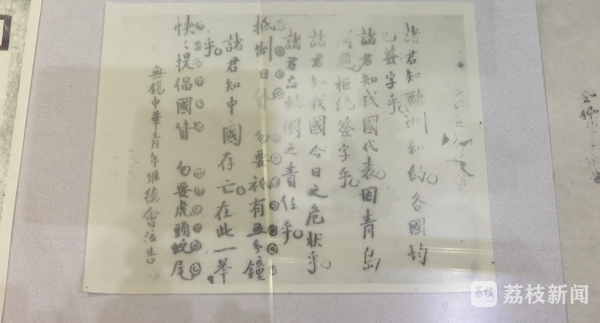 諸君知歐洲和約各國均
已簽字乎
諸君知我國代表因青島
問題拒絕簽字乎
諸君知我國今日之危狀乎
諸君忘救國之責任乎
抵制日貨 勿要祇有五分鐘
諸君知中國存亡在此一舉
乎
快快提倡國貨 勿要虎頭蛇尾
無錫中華青年維德會泣告
荔枝新闻